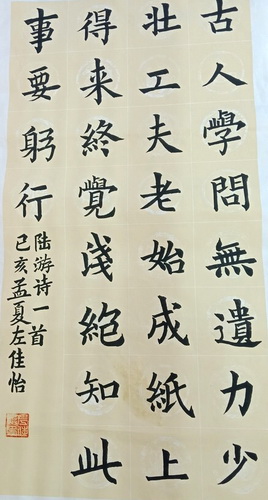 古人學問無遺力少
壯工夫老始成紙上
得来終覺淺絕知此
事要躬行
陆游诗一首
己亥孟夏左佳怡